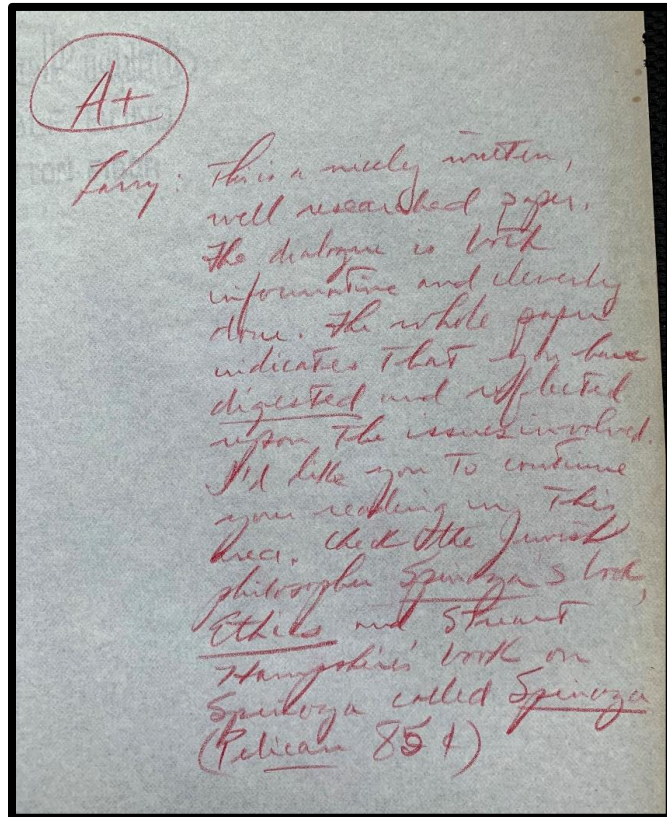 A+
Larry: This is a nicely written,
well researched paper.
The dialogue is both
informative and cleverly
done. The whole paper
indicates that you have
digested and reflected
upon the issues involved.
I'd like you to continue
your reading in this
area. Check the Jewish
philosopher Spinoza's book,
Ethics and Stuart
Hampshire's book on
Spinoza called Spinoza
(Pelican 85¢)